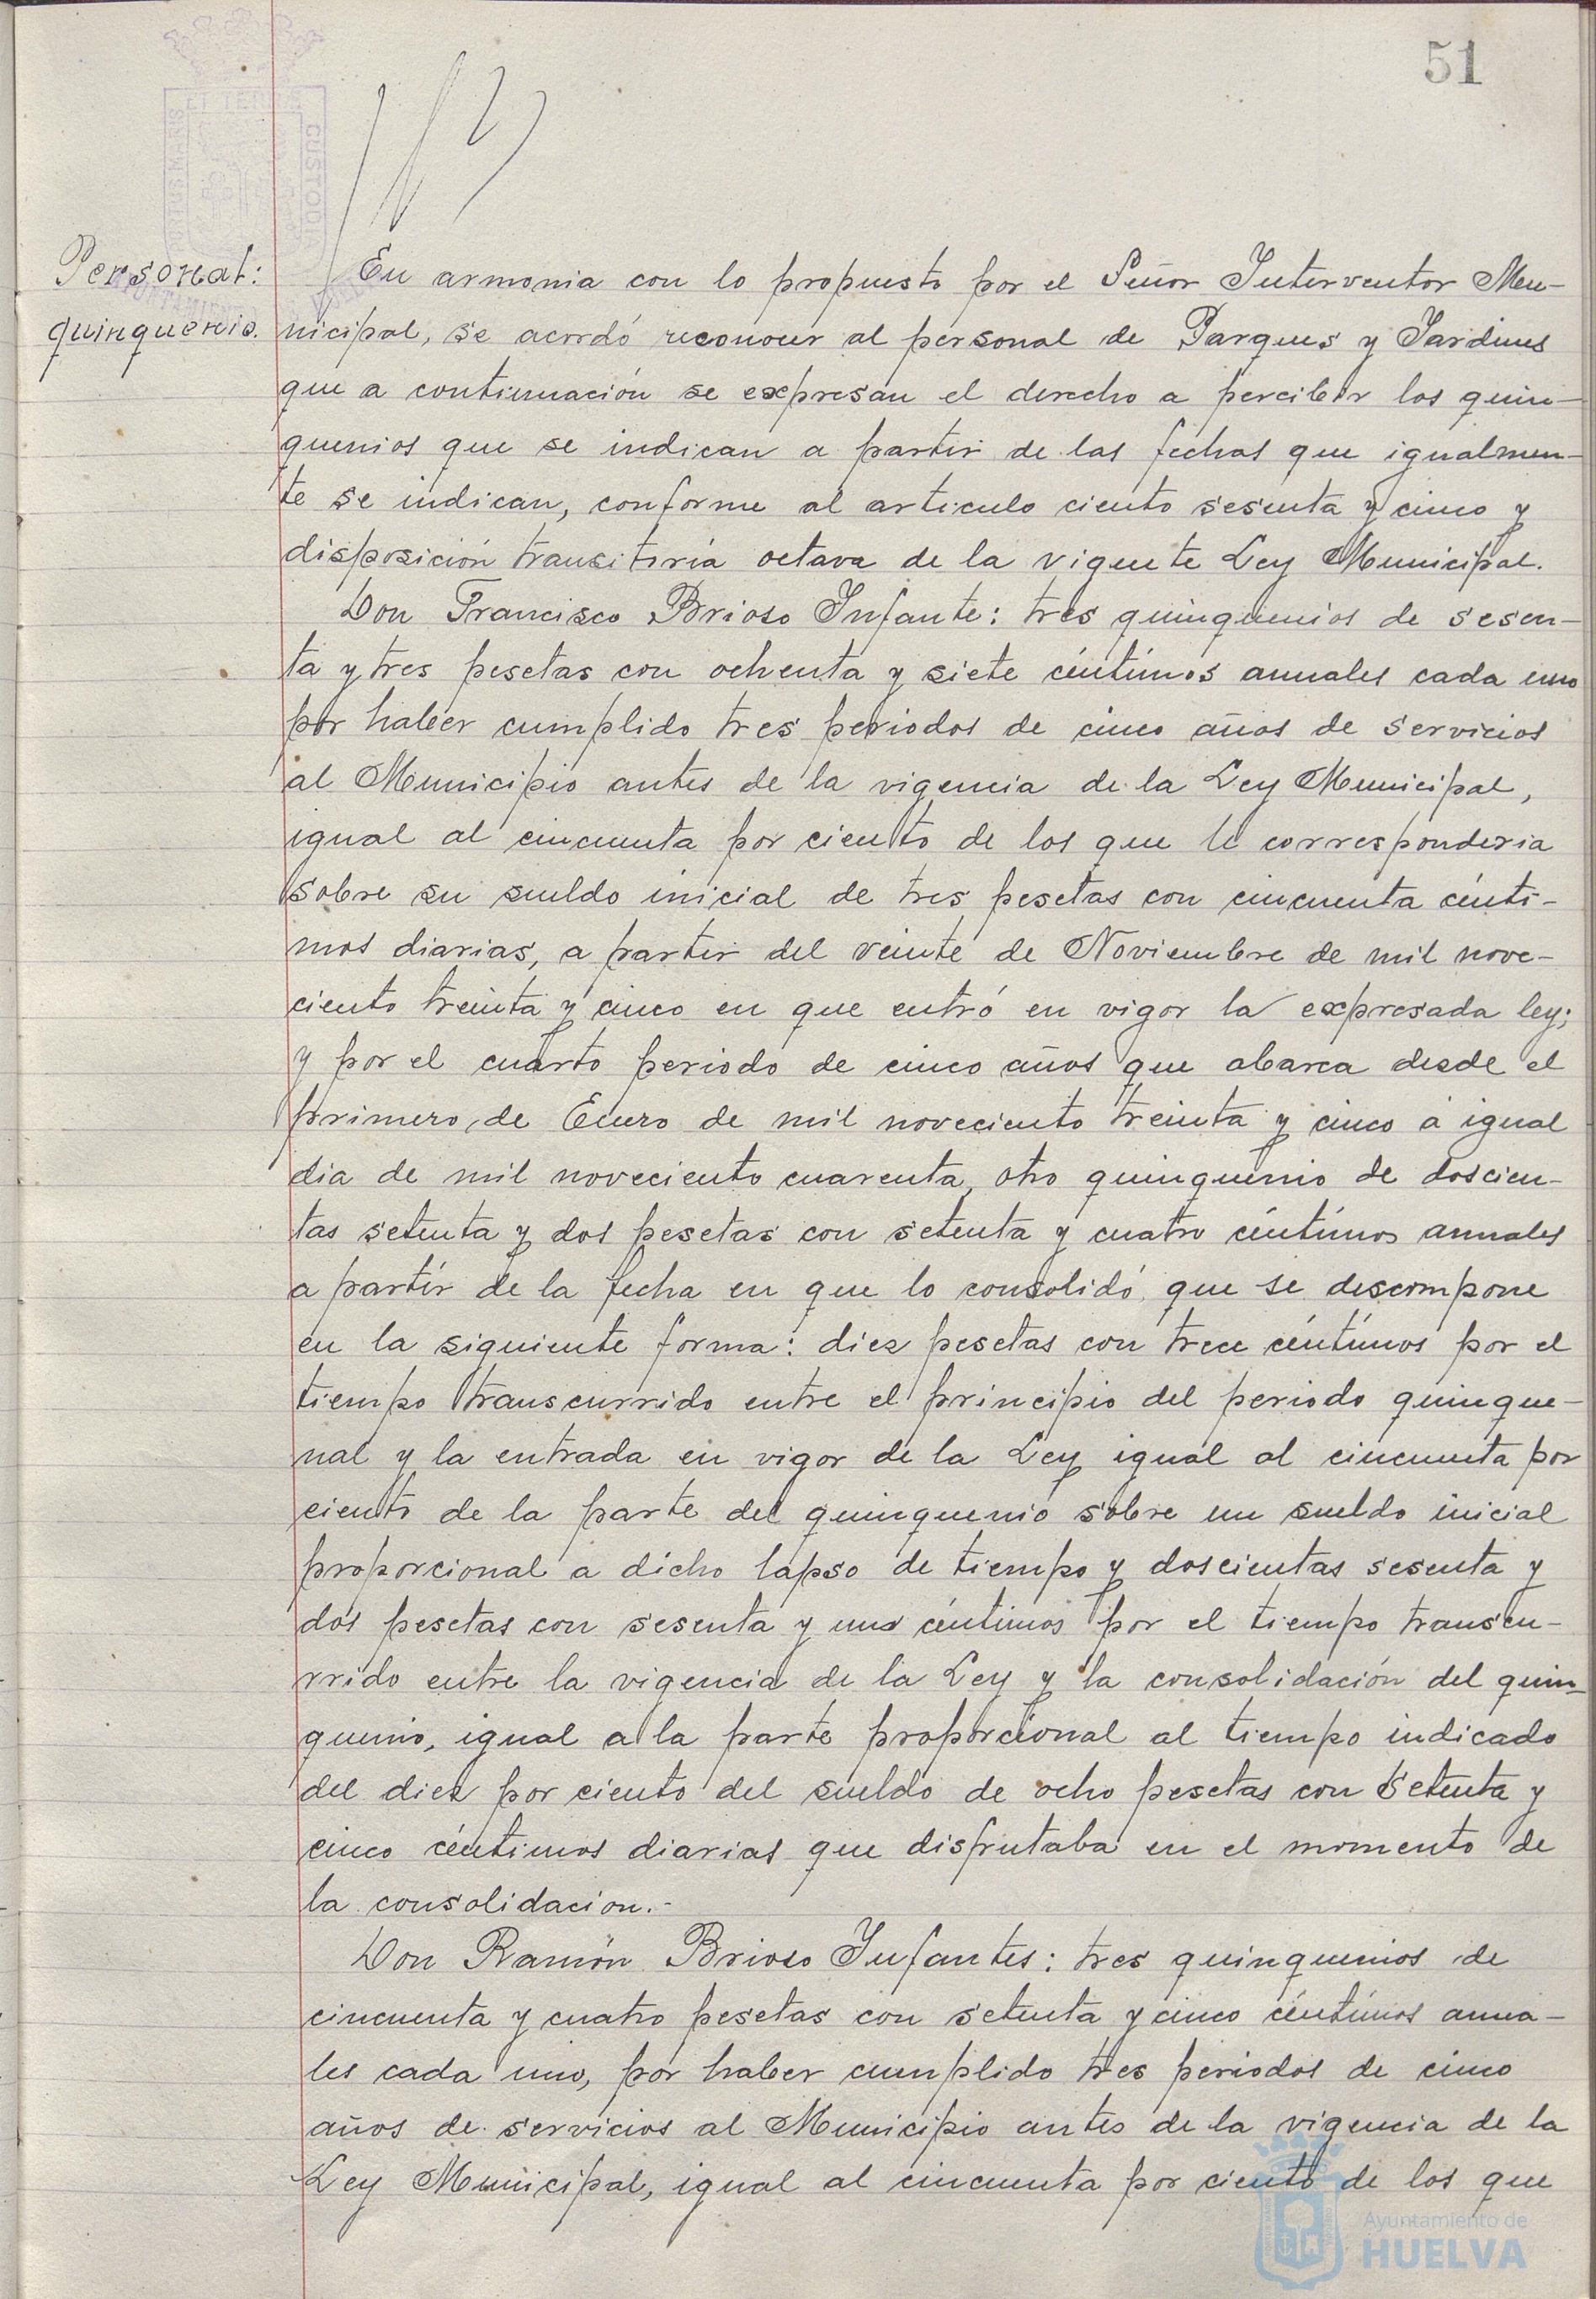 51
Personal:
quinquenio.
En armonia con lo propuesto por el Señor Interventor Mu-
nicipal, se acordó reconocer al personal de Parques y Jardines
que a continuación se expresan el derecho a percibir los quin-
quenios que se indican a partir de las fechas que igualmen-
te se indican, conforme al articulo ciento sesenta y cinco y
disposición transitoria octava de la vigente Ley Municipal.
Don Francisco Brioso Infante: tres quinquenios de sesen-
ta y tres pesetas con ochenta y siete céntimos anuales cada uno
por haber cumplido tres periodos de cinco años de servicios
al Municipio antes de la vigencia de la Ley Municipal,
igual al cincuenta por ciento de los que le corresponderia
sobre su sueldo inicial de tres pesetas con cincuenta cénti-
mos diarias, a partir del veinte de Noviembre de mil nove-
ciento treinta y cinco en que entró en vigor la expresada ley;
y por el cuarto periodo de cinco años que abarca desde el
primero de Enero de mil noveciento treinta y cinco a igual
dia de mil noveciento cuarenta, otro quinquenio de doscien-
tas setenta y dos pesetas con setenta y cuatro céntimos anuales
a partir de la fecha en que lo consolidó, que se descompone
en la siguiente forma: diez pesetas con trece céntimos por el
tiempo transcurrido entre el principio del periodo quinque-
nal y la entrada en vigor de la Ley igual al cincuenta por
ciento de la parte del quinquenio sobre un sueldo inicial
proporcional a dicho lapso de tiempo y doscientas sesenta y
dos pesetas con sesenta y uno céntimos por el tiempo transcu-
rrido entre la vigencia de la Ley y la consolidación del quin-
quenio, igual a la parte proporcional al tiempo indicado
del diez por ciento del sueldo de ocho pesetas con setenta y
cinco céntimos diarias que disfrutaba en el momento de
la consolidacion.-
Don Ramón Brioso Infantes: tres quinquenios de
cincuenta y cuatro pesetas con setenta y cinco céntimos anua-
les cada uno, por haber cumplido tres periodos de cinco
años de servicios al Municipio antes de la vigencia de la
Ley Municipal, igual al cincuenta por ciento de los que
Ayuntamiento de
HUELVA